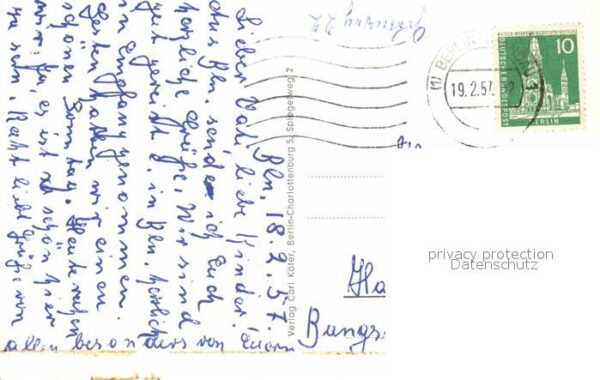 Bln. 18.2.57.
Lieber Vati, liebe Kinder!
Aus Bln. sende ich Euch
herzliche Grüße. Wir sind
gut gereist u. in Bln. herzlich
in Empfang genommen.
Gestern hatten wir einen
schönen Sonntag. Heute
wir, es ist schön hier
zu sein. Recht liebe Grüße von
allen besonders von Euern
Verlag Carl Köfer, Berlin-Charlottenburg 5, Spiegelweg 2
(1) BERLIN
19.2.57
10
DEUTSCHE BUNDESPOST
BERLIN
privacy protection
Datenschutz
Ha
Bungs